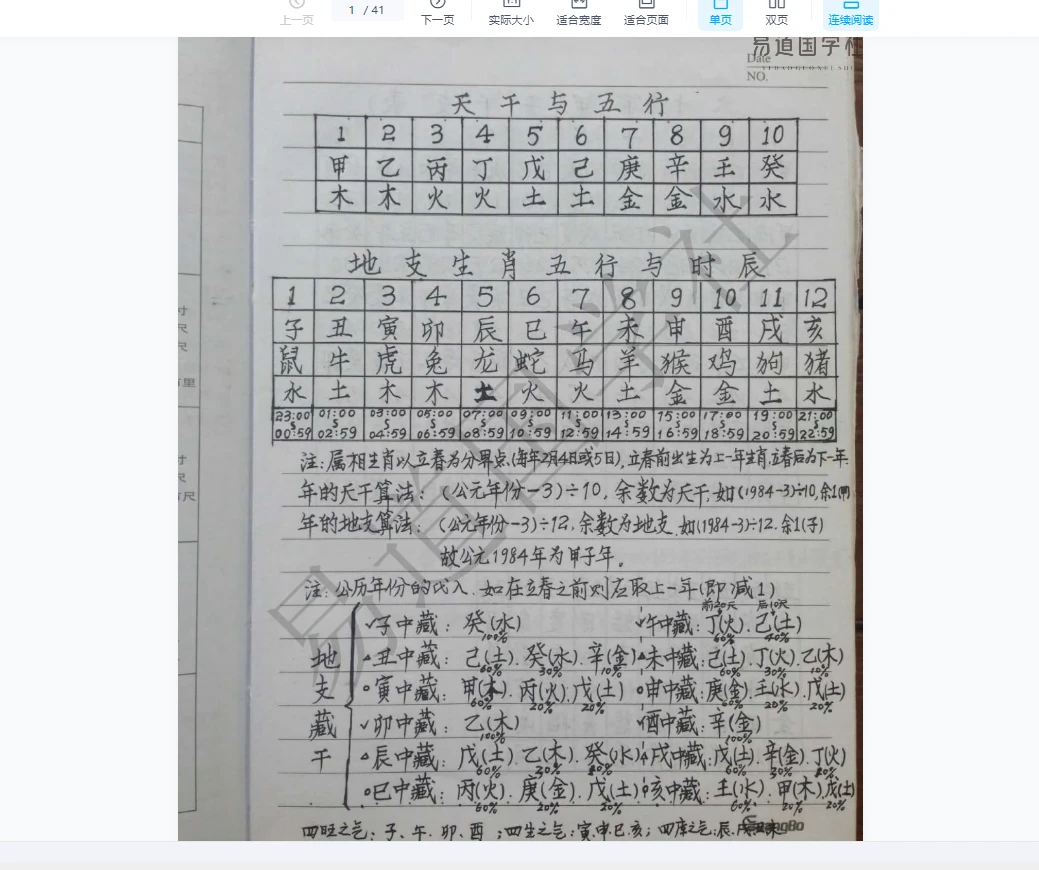 上一页 1 / 41 下一页 实际大小 适合宽度 适合页面 单页 双页 连续阅读
易道国学社
Date
NO.
天干与五行
1 2 3 4 5 6 7 8 9 10
甲 乙 丙 丁 戊 己 庚 辛 壬 癸
木 木 火 火 土 土 金 金 水 水
地支生肖五行与时辰
1 2 3 4 5 6 7 8 9 10 11 12
子 丑 寅 卯 辰 巳 午 未 申 酉 戌 亥
鼠 牛 虎 兔 龙 蛇 马 羊 猴 鸡 狗 猪
水 土 木 木 土 火 火 土 金 金 土 水
23:00 01:00 03:00 05:00 07:00 09:00 11:00 13:00 15:00 17:00 19:00 21:00
00:59 02:59 04:59 06:59 08:59 10:59 12:59 14:59 16:59 18:59 20:59 22:59
注:属相生肖以立春为分界点(每年2月4日或5日),立春前出生为上一年生肖,立春后为下一年.
年的天干算法:(公元年份-3)÷10,余数为天干,如(1984-3)÷10,余1(甲)
年的地支算法:(公元年份-3)÷12,余数为地支,如(1984-3)÷12.余1(子)
故公元1984年为甲子年。
注:公历年份的代入,如在立春之前则应取上一年(即减1)
前20天 后10天
地支藏干
子中藏:癸(水) 午中藏:丁(火).己(土)
100% 60% 40%
丑中藏:己(土).癸(水).辛(金) 未中藏:己(土).丁(火).乙(木)
60% 30% 10% 60% 30% 10%
寅中藏:甲(木).丙(火).戊(土) 申中藏:庚(金).壬(水).戊(土)
60% 20% 20% 60% 20% 20%
卯中藏:乙(木) 酉中藏:辛(金)
100% 100%
辰中藏:戊(土).乙(木).癸(水) 戌中藏:戊(土).辛(金).丁(火)
60% 30% 60% 30%
巳中藏:丙(火).庚(金).戊(土) 亥中藏:壬(水).甲(木).戊(土)
60% 20% 20% 60% 20% 20%
四旺之气:子、午、卯、酉;四生之气:寅.申.巳.亥;四库之气:辰.戌
易道国学社